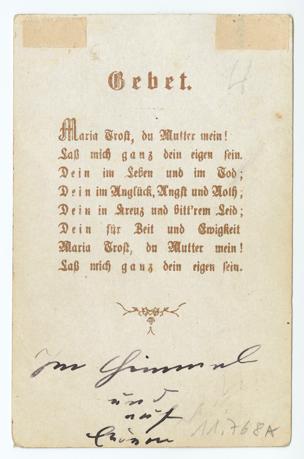 Gebet.
Maria Trost, du Mutter mein!
Laß mich ganz dein eigen sein.
Dein im Leben und im Tod;
Dein im Unglück, Angst und Noth;
Dein in Kreuz und bitt'rem Leid;
Dein für Zeit und Ewigkeit
Maria Trost, du Mutter mein!
Laß mich ganz dein eigen sein.
Im Himmel
und
auf
11.768A